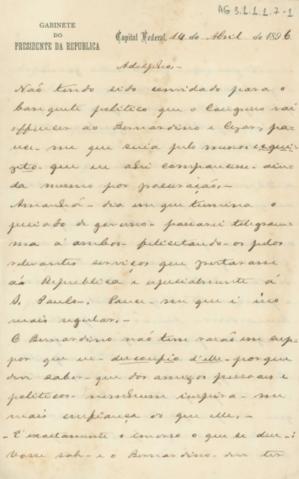 AG 3.1.1.1.7-1
GABINETE
DO
PRESIDENTE DA REPUBLICA
Capital Federal, 14 de Abril de 1896
Adolpho.
Não tendo sido convidado para o
banquete politico que o Congresso vai
offerecer ao Bernardino e Cezar, pa-
rece-me que seria pelo menos exquizi-
to que eu ali comparecesse ain-
da mesmo por procuração.
Amanhã - dia em que termina o
periodo de governo passarei telegram-
ma á ambos felicitando-os pelos
relevantes serviços que prestaram
ás Republica e especialmente á
S. Paulo. Parece-me que é isso
mais regular.
O Bernardino não tem razão em sup-
por que eu desconfio d'elle porque
deve saber que dos amigos pessoais e
politicos nenhum inspira-me
mais confiança do que elle.
É exactamente o inverso o que se
sob e o Bernardino deve ter